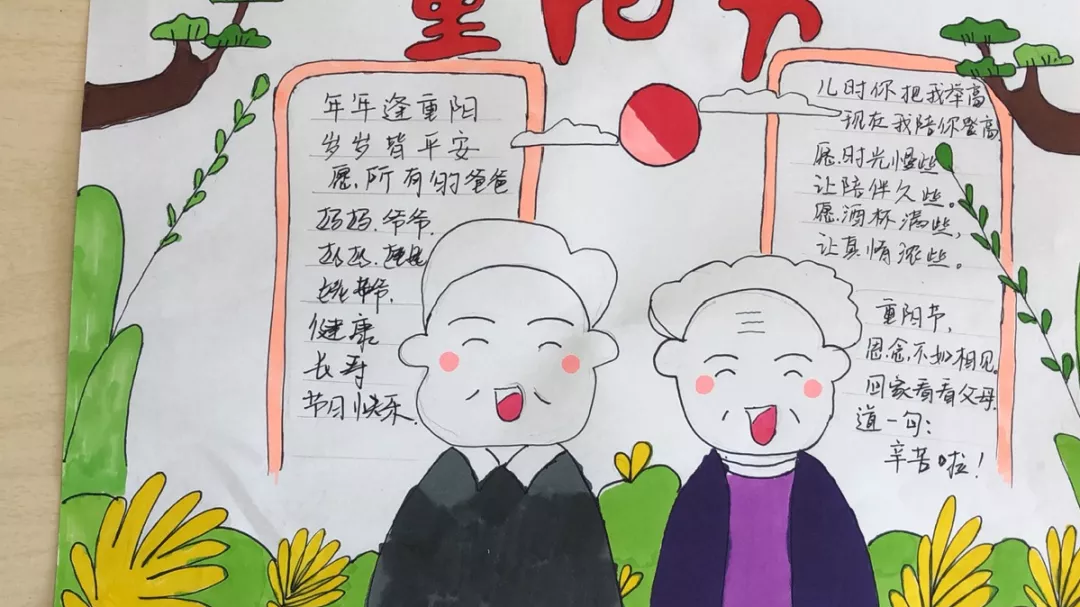 重阳节
年年逢重阳
岁岁皆平安
愿所有的爸爸
妈妈.爷爷.
健康
长寿
节日快乐.
儿时你把我举高
现在我陪你登高
愿.时光慢些
让陪伴久些。
愿.酒杯满些,
让真情浓些。
重阳节,
思念,不如相见。
回家看看父母.
道一句:
辛苦啦!